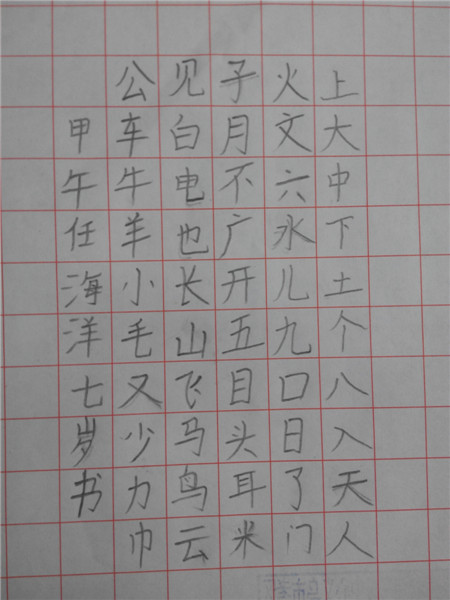 上大中下土个八入天人
火文六水儿九口日了门
子月不广开五目头耳米
见白电也长山飞马鸟云
公车牛羊小毛又少力巾
甲午任海洋七岁书